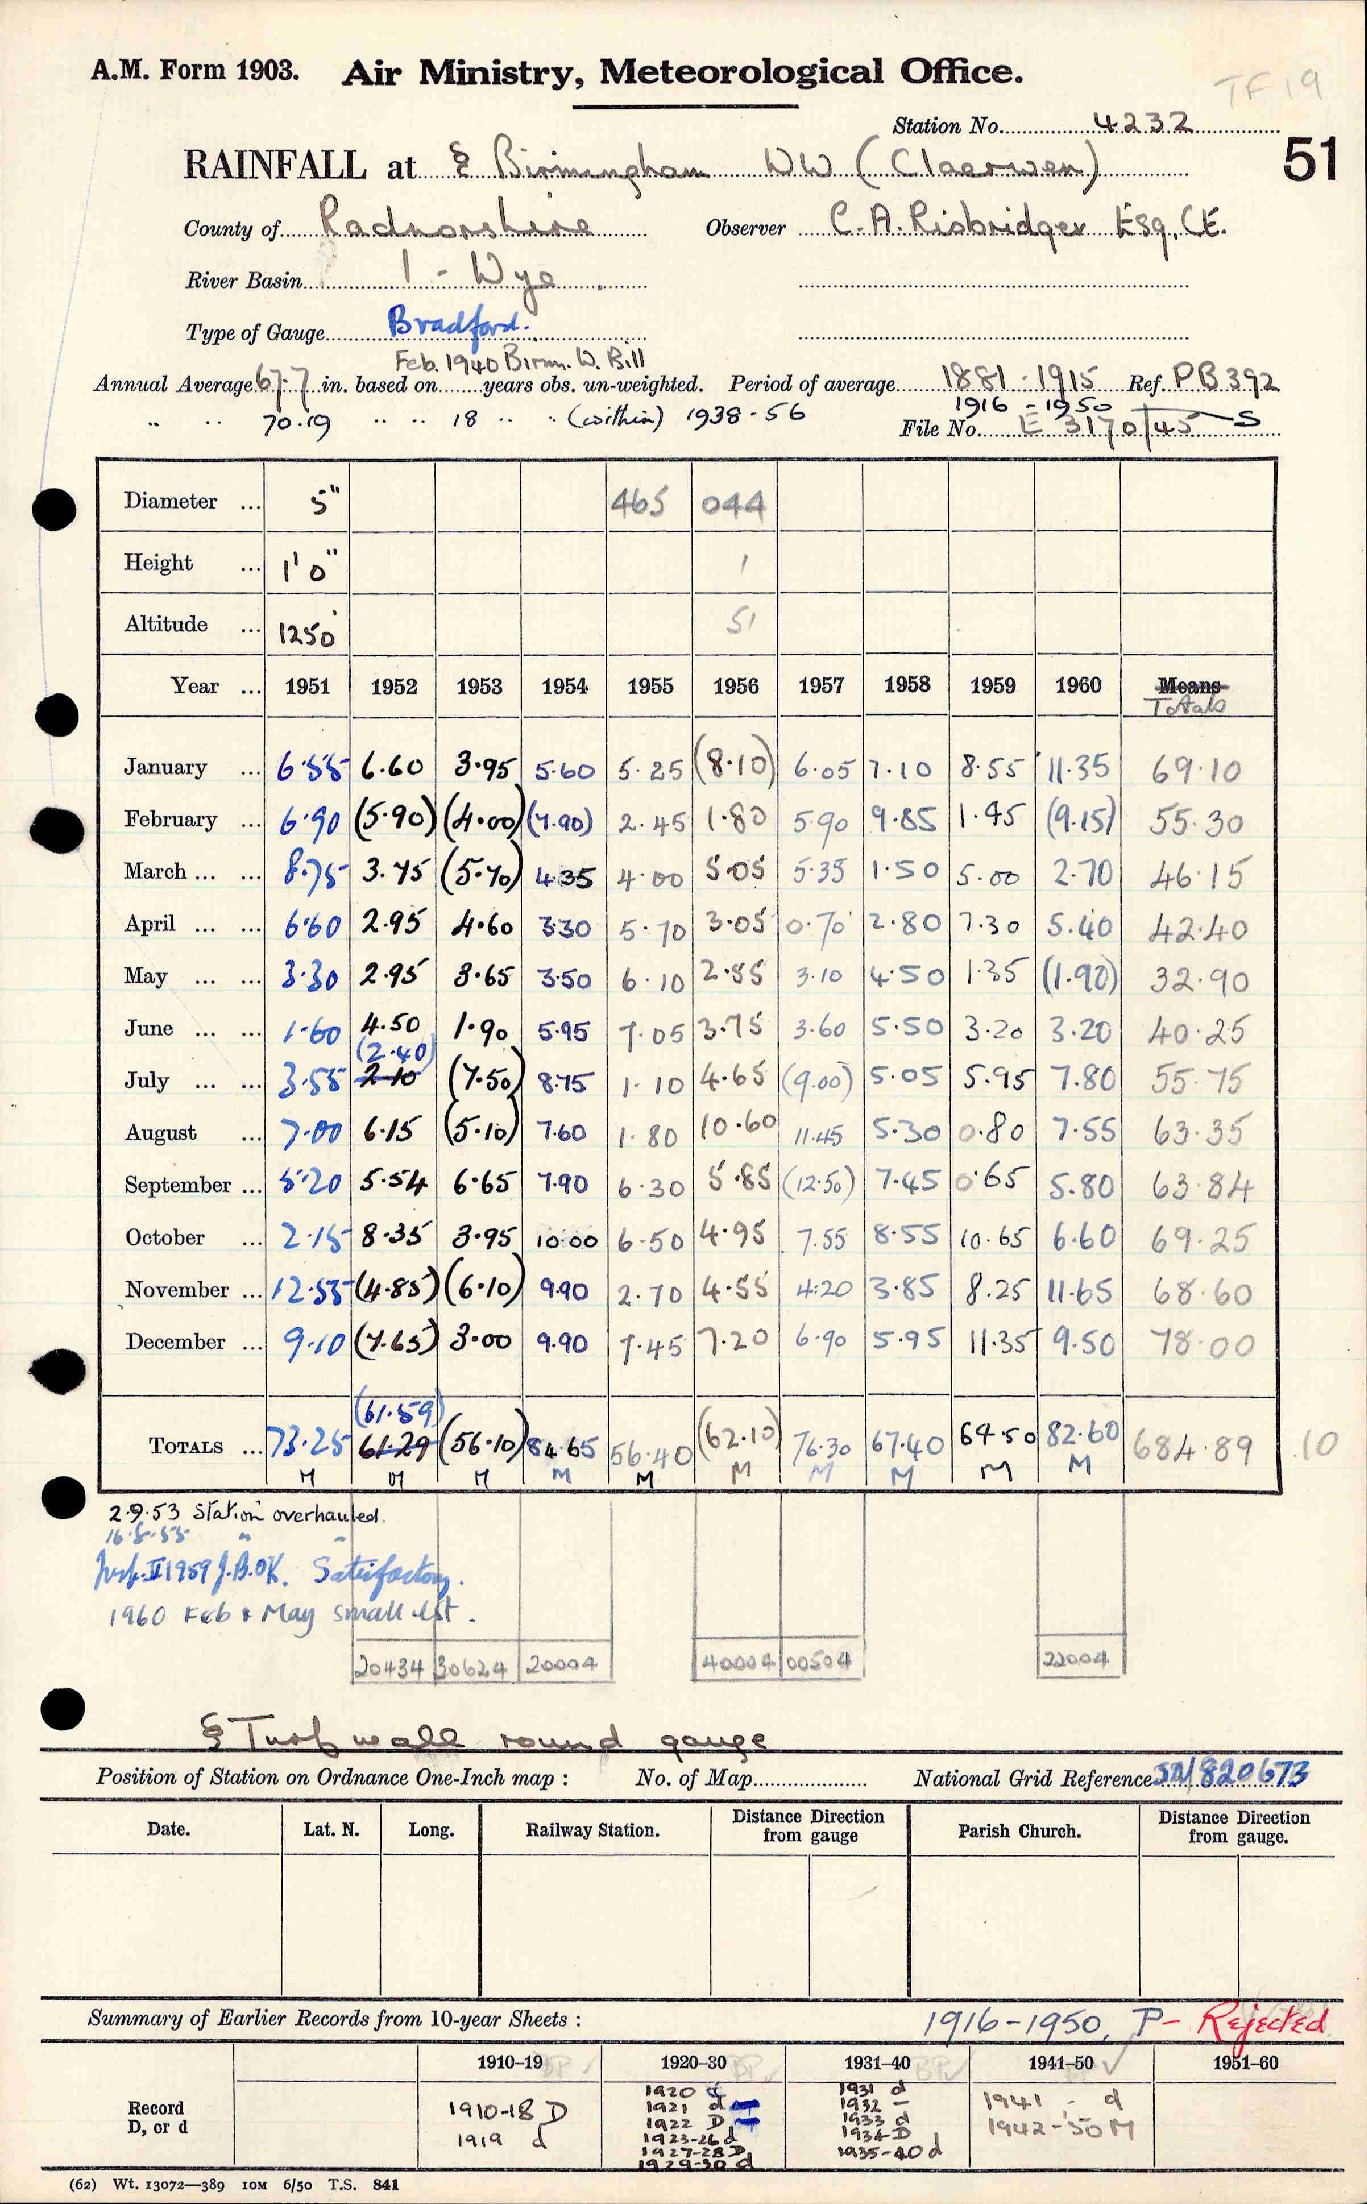 TF 19
A.M. Form 1903. Air Ministry, Meteorological Office.
Station No. 4232
51
RAINFALL at § Birmingham WW (Claerwen)
County of Radnorshire Observer C.A. Risbridger Esq., C.E.
River Basin 1 - Wye
Type of Gauge Bradford.
Feb. 1940 Birm. W. Bill
Annual Average 67.7 in. based on years obs. un-weighted. Period of average 1881-1915 Ref. PB392
1916 - 1950
" " 70.19 " " 18 " " (within) 1938-56 File No. E 3170/45 S
Diameter ... 5" 465 044
Height ... 1' 0" 1
Altitude ... 1250' 51
Year ... 1951 1952 1953 1954 1955 1956 1957 1958 1959 1960 Means
Totals
January ... 6.55 6.60 3.95 5.60 5.25 (8.10) 6.05 7.10 8.55 11.35 69.10
February ... 6.90 (5.90) (4.00) (7.90) 2.45 1.80 5.90 9.85 1.45 (9.15) 55.30
March ... ... 8.75 3.75 (5.70) 4.35 4.00 5.05 5.35 1.50 5.00 2.70 46.15
April ... ... 6.60 2.95 4.60 3.30 5.70 3.05 0.70 2.80 7.30 5.40 42.40
May ... ... 3.30 2.95 3.65 3.50 6.10 2.55 3.10 4.50 1.35 (1.90) 32.90
June ... ... 1.60 4.50 1.90 5.95 7.05 3.75 3.60 5.50 3.20 3.20 40.25
(2.40)
July ... ... 3.55 2.10 (7.50) 8.75 1.10 4.65 (9.00) 5.05 5.95 7.80 55.75
August ... 7.00 6.15 (5.10) 7.60 1.80 10.60 11.45 5.30 0.80 7.55 63.35
September ... 5.20 5.54 6.65 7.90 6.30 5.85 (12.50) 7.45 0.65 5.80 63.84
October ... 2.15 8.35 3.95 10.00 6.50 4.95 7.55 8.55 10.65 6.60 69.25
November ... 12.55 (4.85) (6.10) 9.90 2.70 4.55 4.20 3.85 8.25 11.65 68.60
December ... 9.10 (7.65) 3.00 9.90 7.45 7.20 6.90 5.95 11.35 9.50 78.00
(61.59)
TOTALS ... 73.25 61.29 (56.10) 84.65 56.40 (62.10) 76.30 67.40 64.50 82.60 684.89 .10
M M M M M M M M M M
2.9.53 Station overhauled.
16.8.55 " "
Insp. II 1959 J.B.OK. Satisfactory.
1960 Feb & May small est.
20434 30624 20004 40004 00504 22004
§ Turf wall round gauge
Position of Station on Ordnance One-Inch map : No. of Map National Grid Reference SN/820673
Date. Lat. N. Long. Railway Station. Distance Direction from gauge Parish Church. Distance Direction from gauge.
Summary of Earlier Records from 10-year Sheets : 1916-1950, P - Rejected
1910-19 1920-30 1931-40 1941-50 1951-60
Record
D, or d
1910-18 D
1919 d
1920 d
1921 d
1922 D
1923-26 d
1927-28 D
1929-30 d
1931 d
1932 -
1933 d
1934 D
1935-40 d
1941 - d
1942-50 M
(62) Wt. 13072—389 10M 6/50 T.S. 841